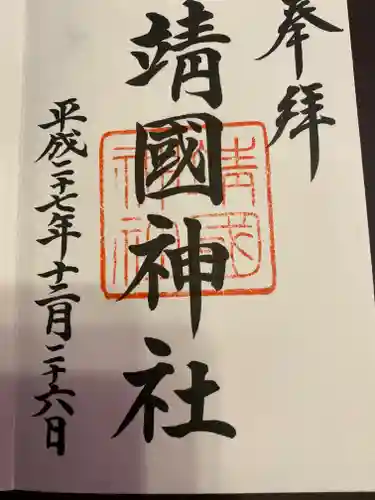 奉拝
靖國神社
靖國
神社
平成二十七年十二月二十六日